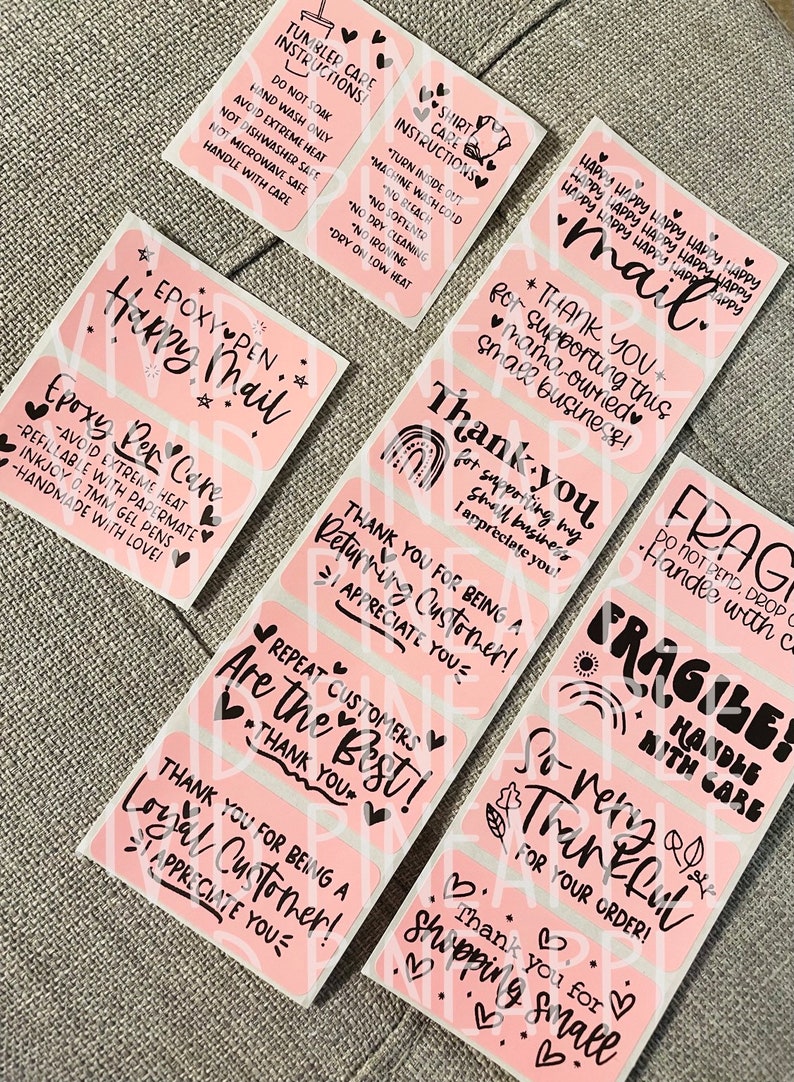 TUMBLER CARE
INSTRUCTIONS!
DO NOT SOAK
HAND WASH ONLY
AVOID EXTREME HEAT
NOT DISHWASHER SAFE
NOT MICROWAVE SAFE
HANDLE WITH CARE
SHIRT
CARE
INSTRUCTIONS
*TURN INSIDE OUT
*MACHINE WASH COLD
*NO BLEACH
*NO SOFTENER
*NO DRY CLEANING
*NO IRONING
*DRY ON LOW HEAT
EPOXY PEN
Happy Mail
Epoxy Pen Care
-AVOID EXTREME HEAT
-REFILLABLE WITH PAPERMATE
INKJOY 0.7MM GEL PENS
-HANDMADE WITH LOVE!
HAPPY HAPPY HAPPY HAPPY HAPPY
HAPPY HAPPY HAPPY HAPPY HAPPY
HAPPY HAPPY HAPPY HAPPY HAPPY
mail
THANK YOU
for supporting this
mama-owned
small business!
Thank you
for supporting my
small business
I appreciate you!
THANK YOU FOR BEING A
Returning Customer!
I APPRECIATE YOU
REPEAT CUSTOMERS
Are the Best!
*THANK YOU*
THANK YOU FOR BEING A
Loyal Customer!
I APPRECIATE YOU
DO NOT BEND, DROP
Handle with
FRAGILE!
HANDLE
WITH CARE
So very
Thankful
FOR YOUR ORDER!
Thank you for
shopping small
VIVID PINEAPPLE
VIVID PINEAPPLE
VIVID PINEAPPLE
VIVID PINEAPPLE